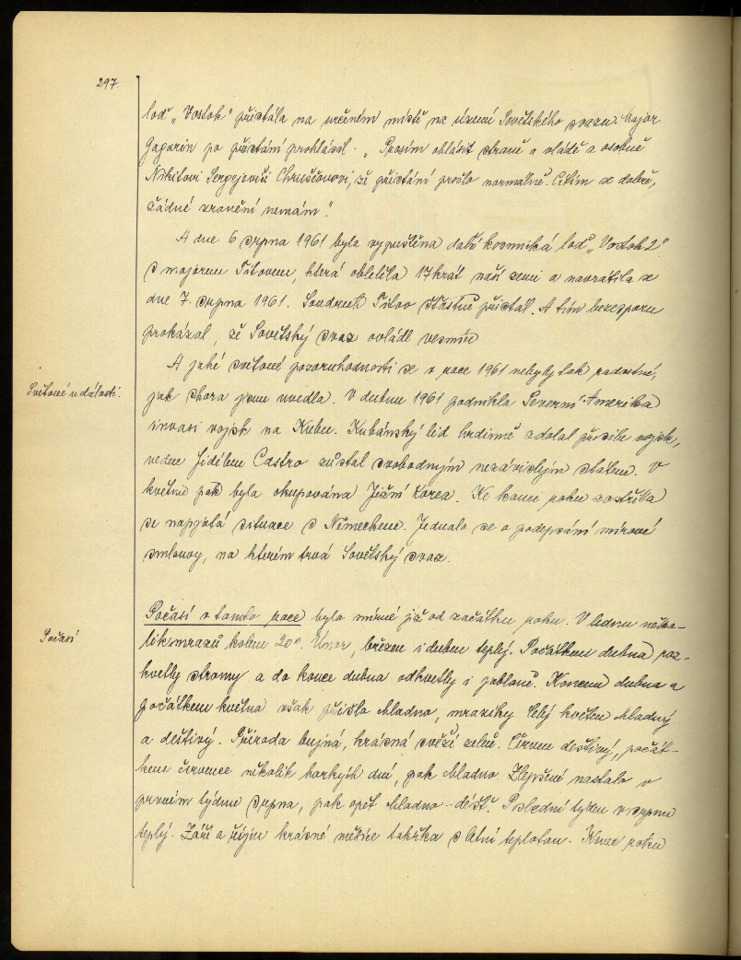 297.
loď „Vostok" přistála na určeném místě na území Sovětského svazu. Major
Gagarin po přistání prohlásil. „Prosím ohlásit straně a vládě a osobně
Nikitovi Sergejeviči Chruščovovi, že přistání prošlo normálně. Cítím se dobře,
žádné zranění nemám."
A dne 6 srpna 1961 byla vypuštěna další kosmická loď „Vostok 2"
s majorem Titovem, která obletěla 17krát naší zemi a navrátila se
dne 7. srpna 1961. Soudruh Titov šťastně přistál. A tím bezesporu
prokázal, že Sovětský svaz ovládl vesmír
Světové události.
A jaké světové pozoruhodnosti se v roce 1961 nebyly tak radostné,
jak shora jsem uvedla. V dubnu 1961 podnikla Severní Amerika
invasi vojsk na Kubu. Kubánský lid hrdinně zdolal přesilu vojsk,
veden Fidélem Castro zůstal svobodným nezávislým státem. V
květnu pak byla okupována Jižní Korea. Ke konci roku zostřila
se napjatá situace s Německem. Jednalo se o podepsání mírové
smlouvy, na kterém trvá Sovětský svaz.
Počasí
Počasí v tomto roce bylo mírné již od začátku roku. V lednu něko-
lik mrazů kolem 20°. Únor, březen i duben teplý. Počátkem dubna roz-
kvetly stromy a do konce dubna odkvetly i jabloně. Koncem dubna a
počátkem května však přišlo chladno, mrazíky. Celý květen chladný
a deštivý. Příroda bujná, krásná svěží zeleň. Červen deštivý, počát-
kem července několik horkých dní, pak chladno. Zlepšení nastalo v
prvním týdnu srpna, pak opět chladno - déšť. Poslední týden v srpnu
teplý. Září a říjen krásné měsíce takřka s letní teplotou. Konec roku